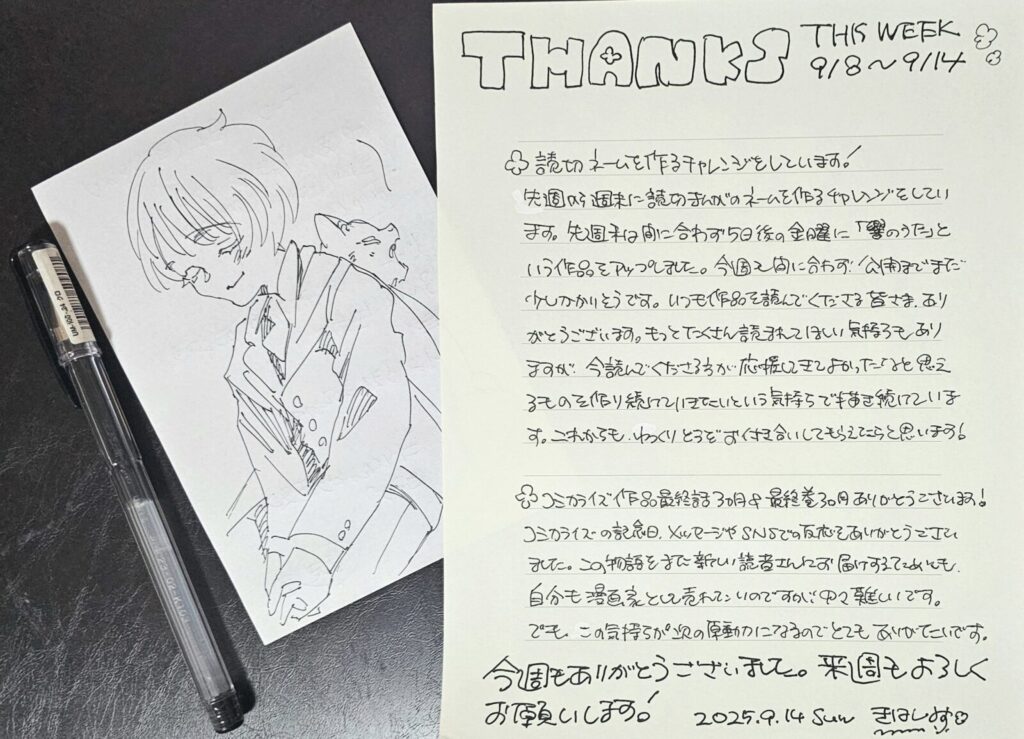 THANKS THIS WEEK
9/8〜9/14
読切ネームを作るチャレンジをしています!
先週から週末に読切まんがのネームを作るチャレンジをしてい
ます。先週末は間に合わず5日後の金曜に「響のうた」と
いう作品をアップしました。今週も間に合わず公開までまだ
少しかかりそうです。いつも作品を読んでくださる皆さま、あり
がとうございます。もっとたくさん読まれてほしい気持ちもあり
ますが、今読んでくださる方が応援してきてよかったなと思え
るものを作り続けていきたいという気持ちで描き続けていま
す。これからも、ゆっくりとうぞおつき合いしてもらえたらと思います!
コミカライズ作品最終話3カ月&最終巻3カ月ありがとうございます!
コミカライズの記念日、メッセージやSNSでの反応をありがとうござい
ました。この物語をまた新しい読者さんにお届けするためにも、
自分も漫画家として売れたいのですが中々難しいです。
でも、この気持ちが次の原動力になるのでとてもありがたいです。
今週もありがとうございました。来週もよろしく
お願いします!
2025.9.14 Sun